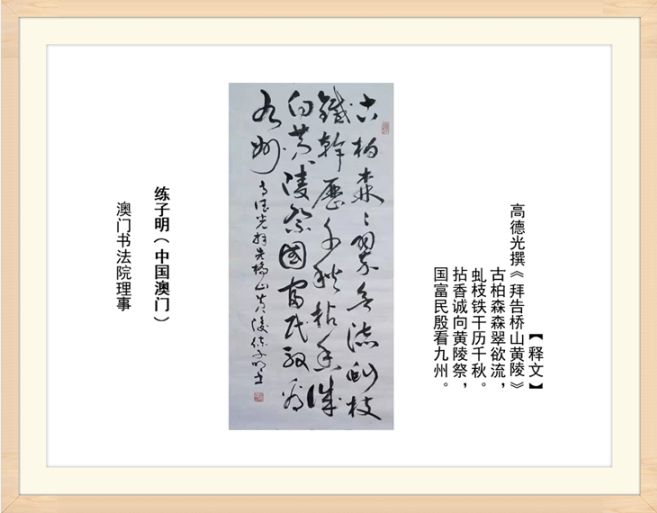 【释文】
高德光撰《拜告桥山黄陵》
古柏森森翠欲流，
虬枝铁干历千秋。
拈香诚向黄陵祭，
国富民殷看九州。
古柏森〻翠欲流虬枝
鐵幹歷千秋拈香誠
向黄陵祭國富民殷看
九州
高德光拜告橋山黄陵練子明書
练子明（中国澳门）
澳门书法院理事